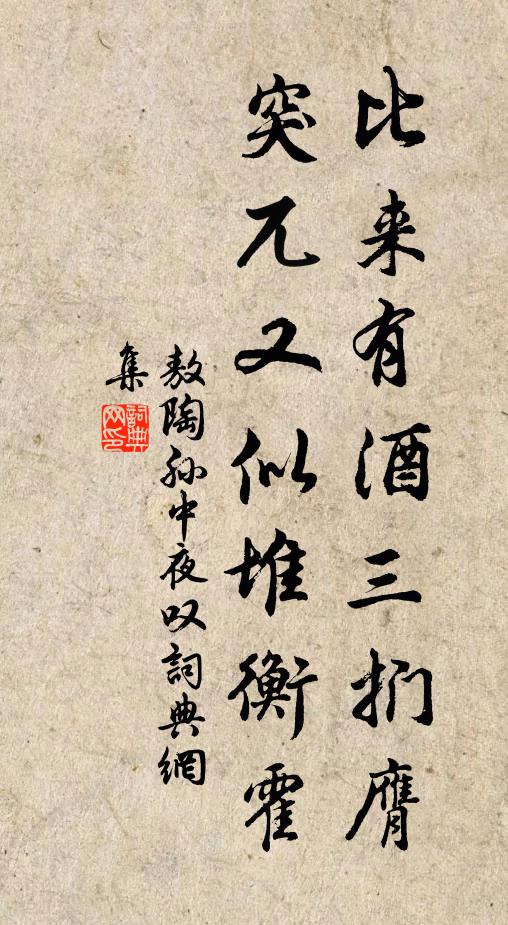 比来有酒三扪膺
突兀又似堆衡霍
敖陶孙中夜叹詞典網
集
詞典网印